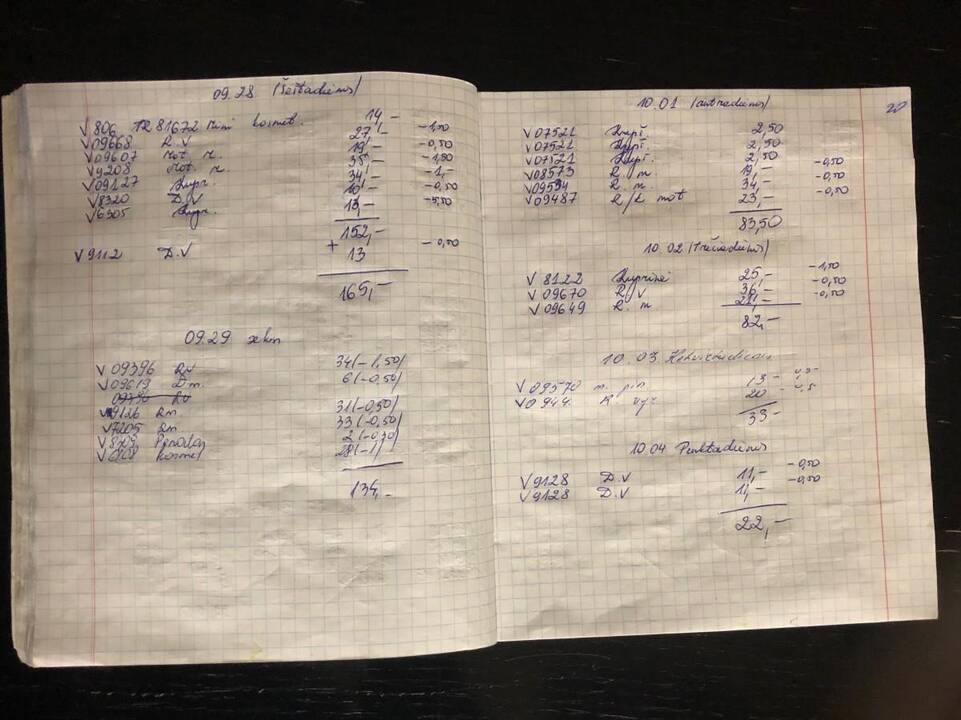 09.28 (Šeštadienis)
V 806 TR 81672 Mini kosmet. 14,-
V 09668 R.V 27,- -1,50
V 09607 Mot R. 19,- -0,50
V 9208 Mot. R. 35,- -1,50
V 09127 Kupr. 34,- -1,-
V 8320 D.V 10,- -0,50
V 6305 Kupr. 13,- -5,50
152,-
V 9112 D.V + 13 -0,50
165,-
09.29 sekm
V 09396 RV 34(-1,50)
V 09619 Dm. 6(-0,50)
09396 RV
V 9126 Rm. 31(-0,50)
V 7205 Rm 33(-0,50)
V 8209 Penalas 2(-0,30)
V 0108 kosmet 28(-1)
134,-
20
10.01 (antradienis)
V 07521 Kupr. 2,50
V 07521 Kupr. 2,50
V 07521 Kupr. 2,50
V 08573 R.m. 19,- -0,50
V 09534 R.m. 34,- -0,50
V 09487 R/R mot 23,- -0,50
83,50
10.02 (Trečiadienis)
V 8122 Kuprinė 25,- -1,50
V 09670 R/V 36,- -0,50
V 09649 R.m 21,- -0,50
82,-
10.03 Ketvirtadienis
V 09570 m. pin 13 - 0,5
V 0944. R. vyr 20 - 0,5
33-
10.04 Penktadienis
V 9128 D.V 11,- -0,50
V 9128 D.V 11,- -0,50
22,-